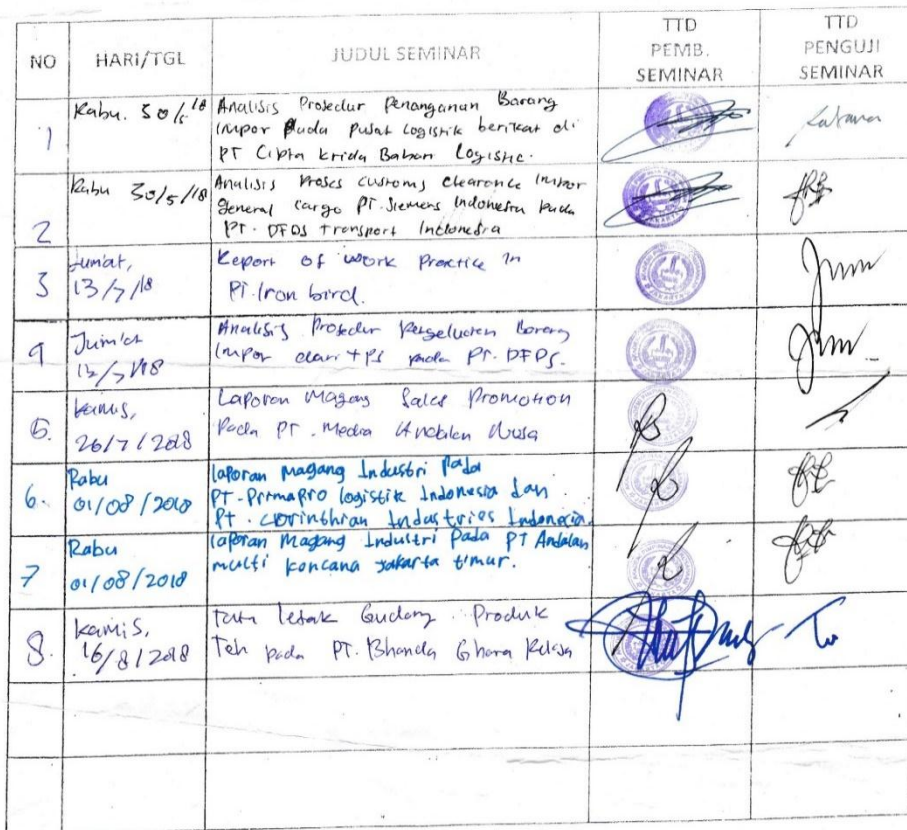 NO HARI/TGL JUDUL SEMINAR TTD PEMB. SEMINAR TTD PENGUJI SEMINAR
1 Rabu. 30/5 18 Analisis Prosedur Penanganan Barang
impor Pada pusat Logistik berikat di
PT Cipta Krida Bahari Logistic.
2 Rabu 30/5/18 Analisis Proses customs clearance impor
general cargo PT. Siemens Indonesia pada
PT. DFDS Transport Indonesia
3 Jum'at, 13/7/18 Report of work Practice in
PT. Iron bird.
4 Jum'at 13/7/18 Analisis Prosedur Pengeluaran barang
impor dari TPS pada PT. DFDS.
5. Kamis, 26/7/2018 Laporan Magang Sales Promotion
Pada PT. Media Andalan Nusa
6. Rabu 01/08/2018 laporan magang Industri Pada
PT. Primapro logistik Indonesia dan
Pt. corinthian Industries Indonesia.
7 Rabu 01/08/2018 laporan Magang Industri Pada PT Andalan
multi kencana jakarta timur.
8. Kamis, 16/8/2018 Tata letak Gudang Produk
Teh pada PT. Bhanda Ghara Reksa